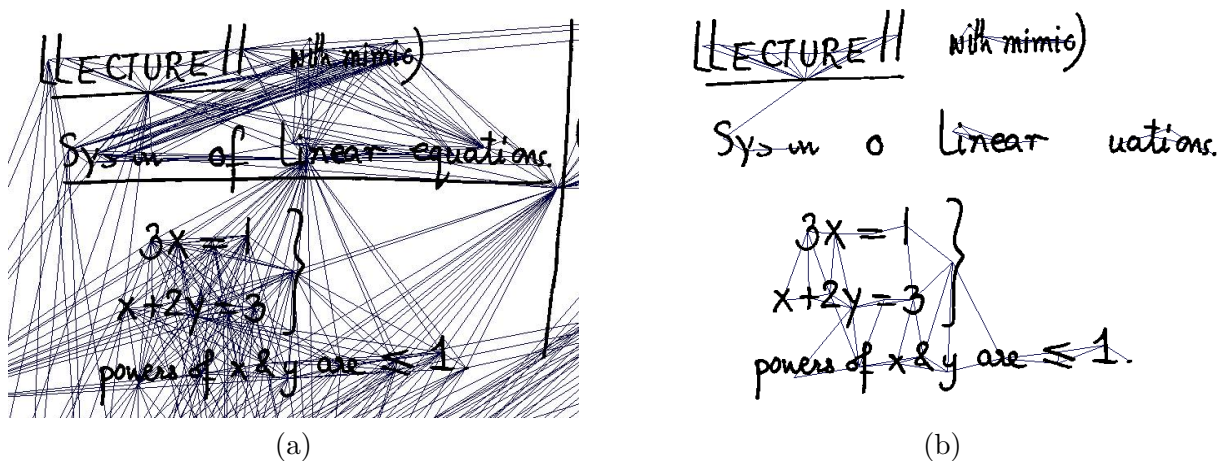 LLECTURE II with mimic)
System of Linear equations.
3x = 1 }
x+2y=3
powers of x & y are ≤ 1.
(a)
LLECTURE II with mimic)
Sys m o Linear uations.
3x = 1 }
x+2y=3
powers of x & y are ≤ 1.
(b)